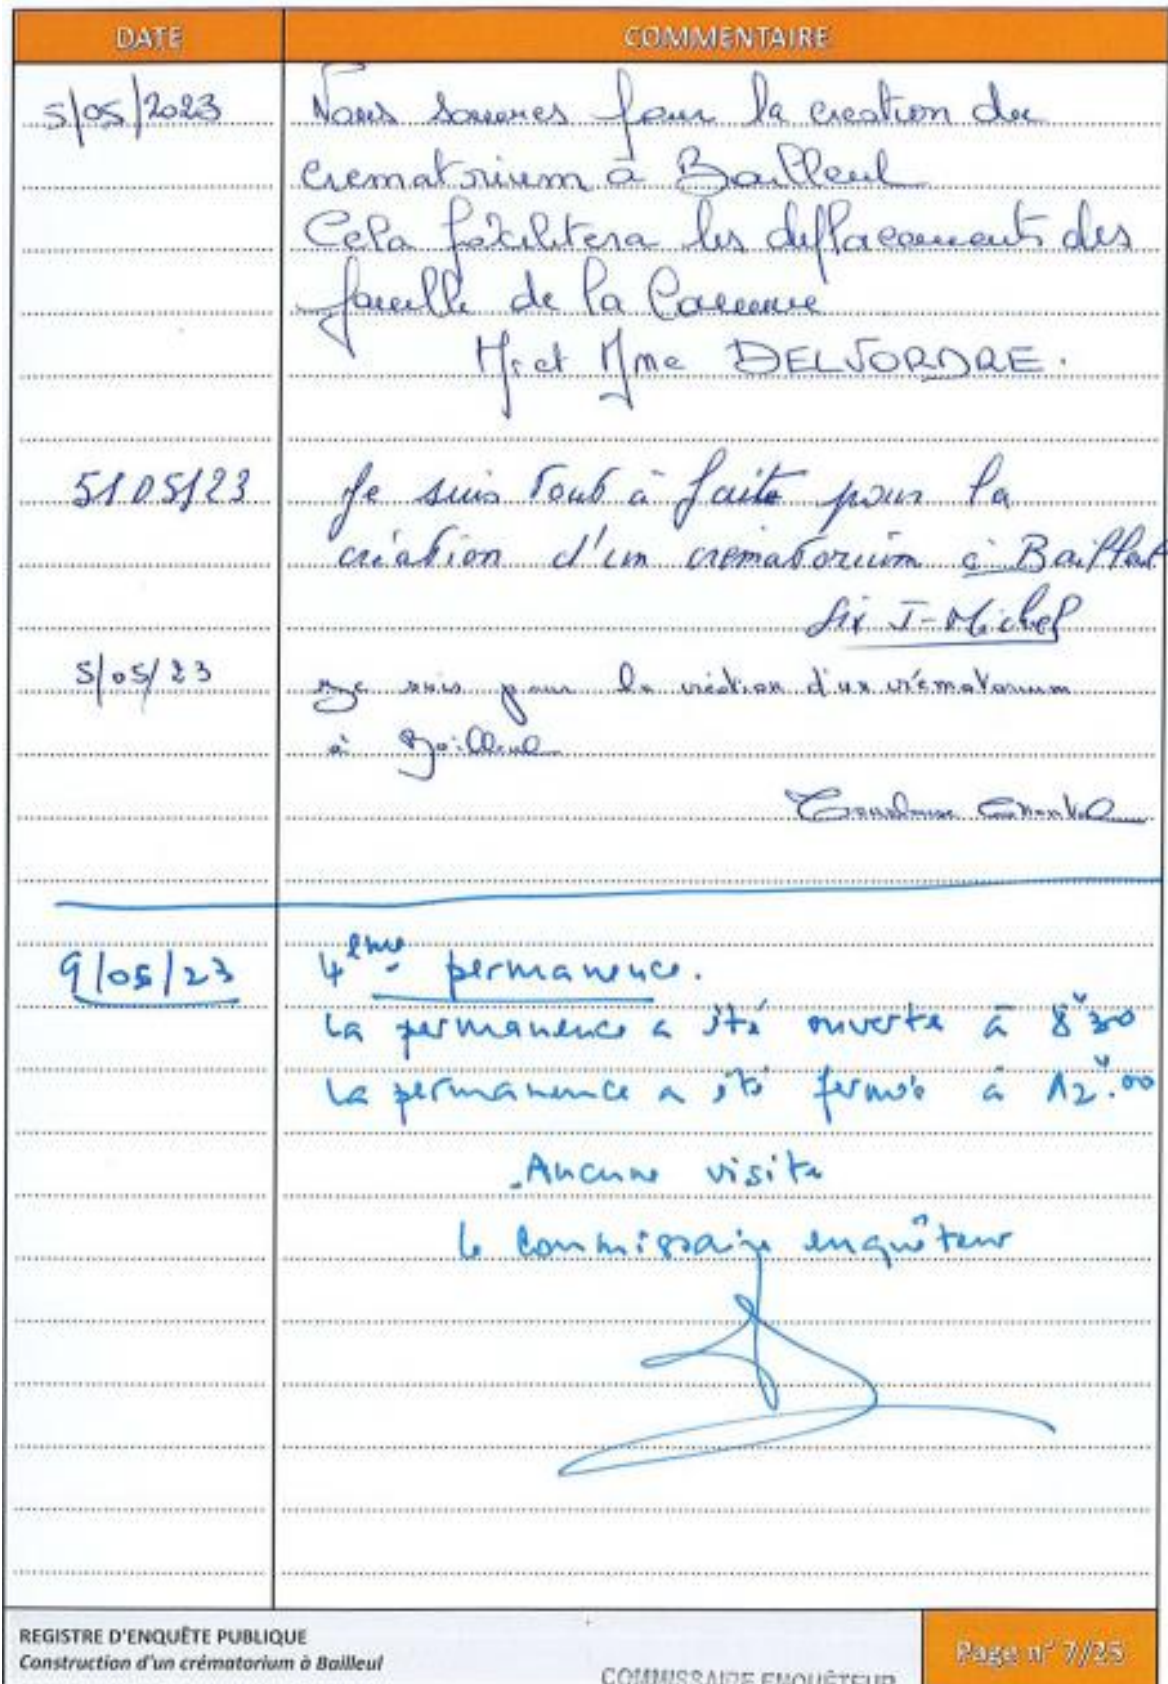 DATE
COMMENTAIRE
5/05/2023
Nous sommes pour la creation du
crematorium à Bailleul
Cela facilitera les deplacements des
famille de la Commune
Mr et Mme DELVORDRE.
5/05/23
Je suis tout à faite pour la
création d'un crematorium à Bailleul
Six J-Michel
5/05/23
Je suis pour la création d'un crématorium
à Bailleul
Chantal
9/05/23
4ème permanence.
La permanence a été ouverte à 8h30
La permanence a été fermée à 12h00
Aucune visite
Le Commissaire enquêteur
REGISTRE D'ENQUÊTE PUBLIQUE
Construction d'un crématorium à Bailleul
COMMISSAIRE ENQUÊTEUR
Page n° 7/25